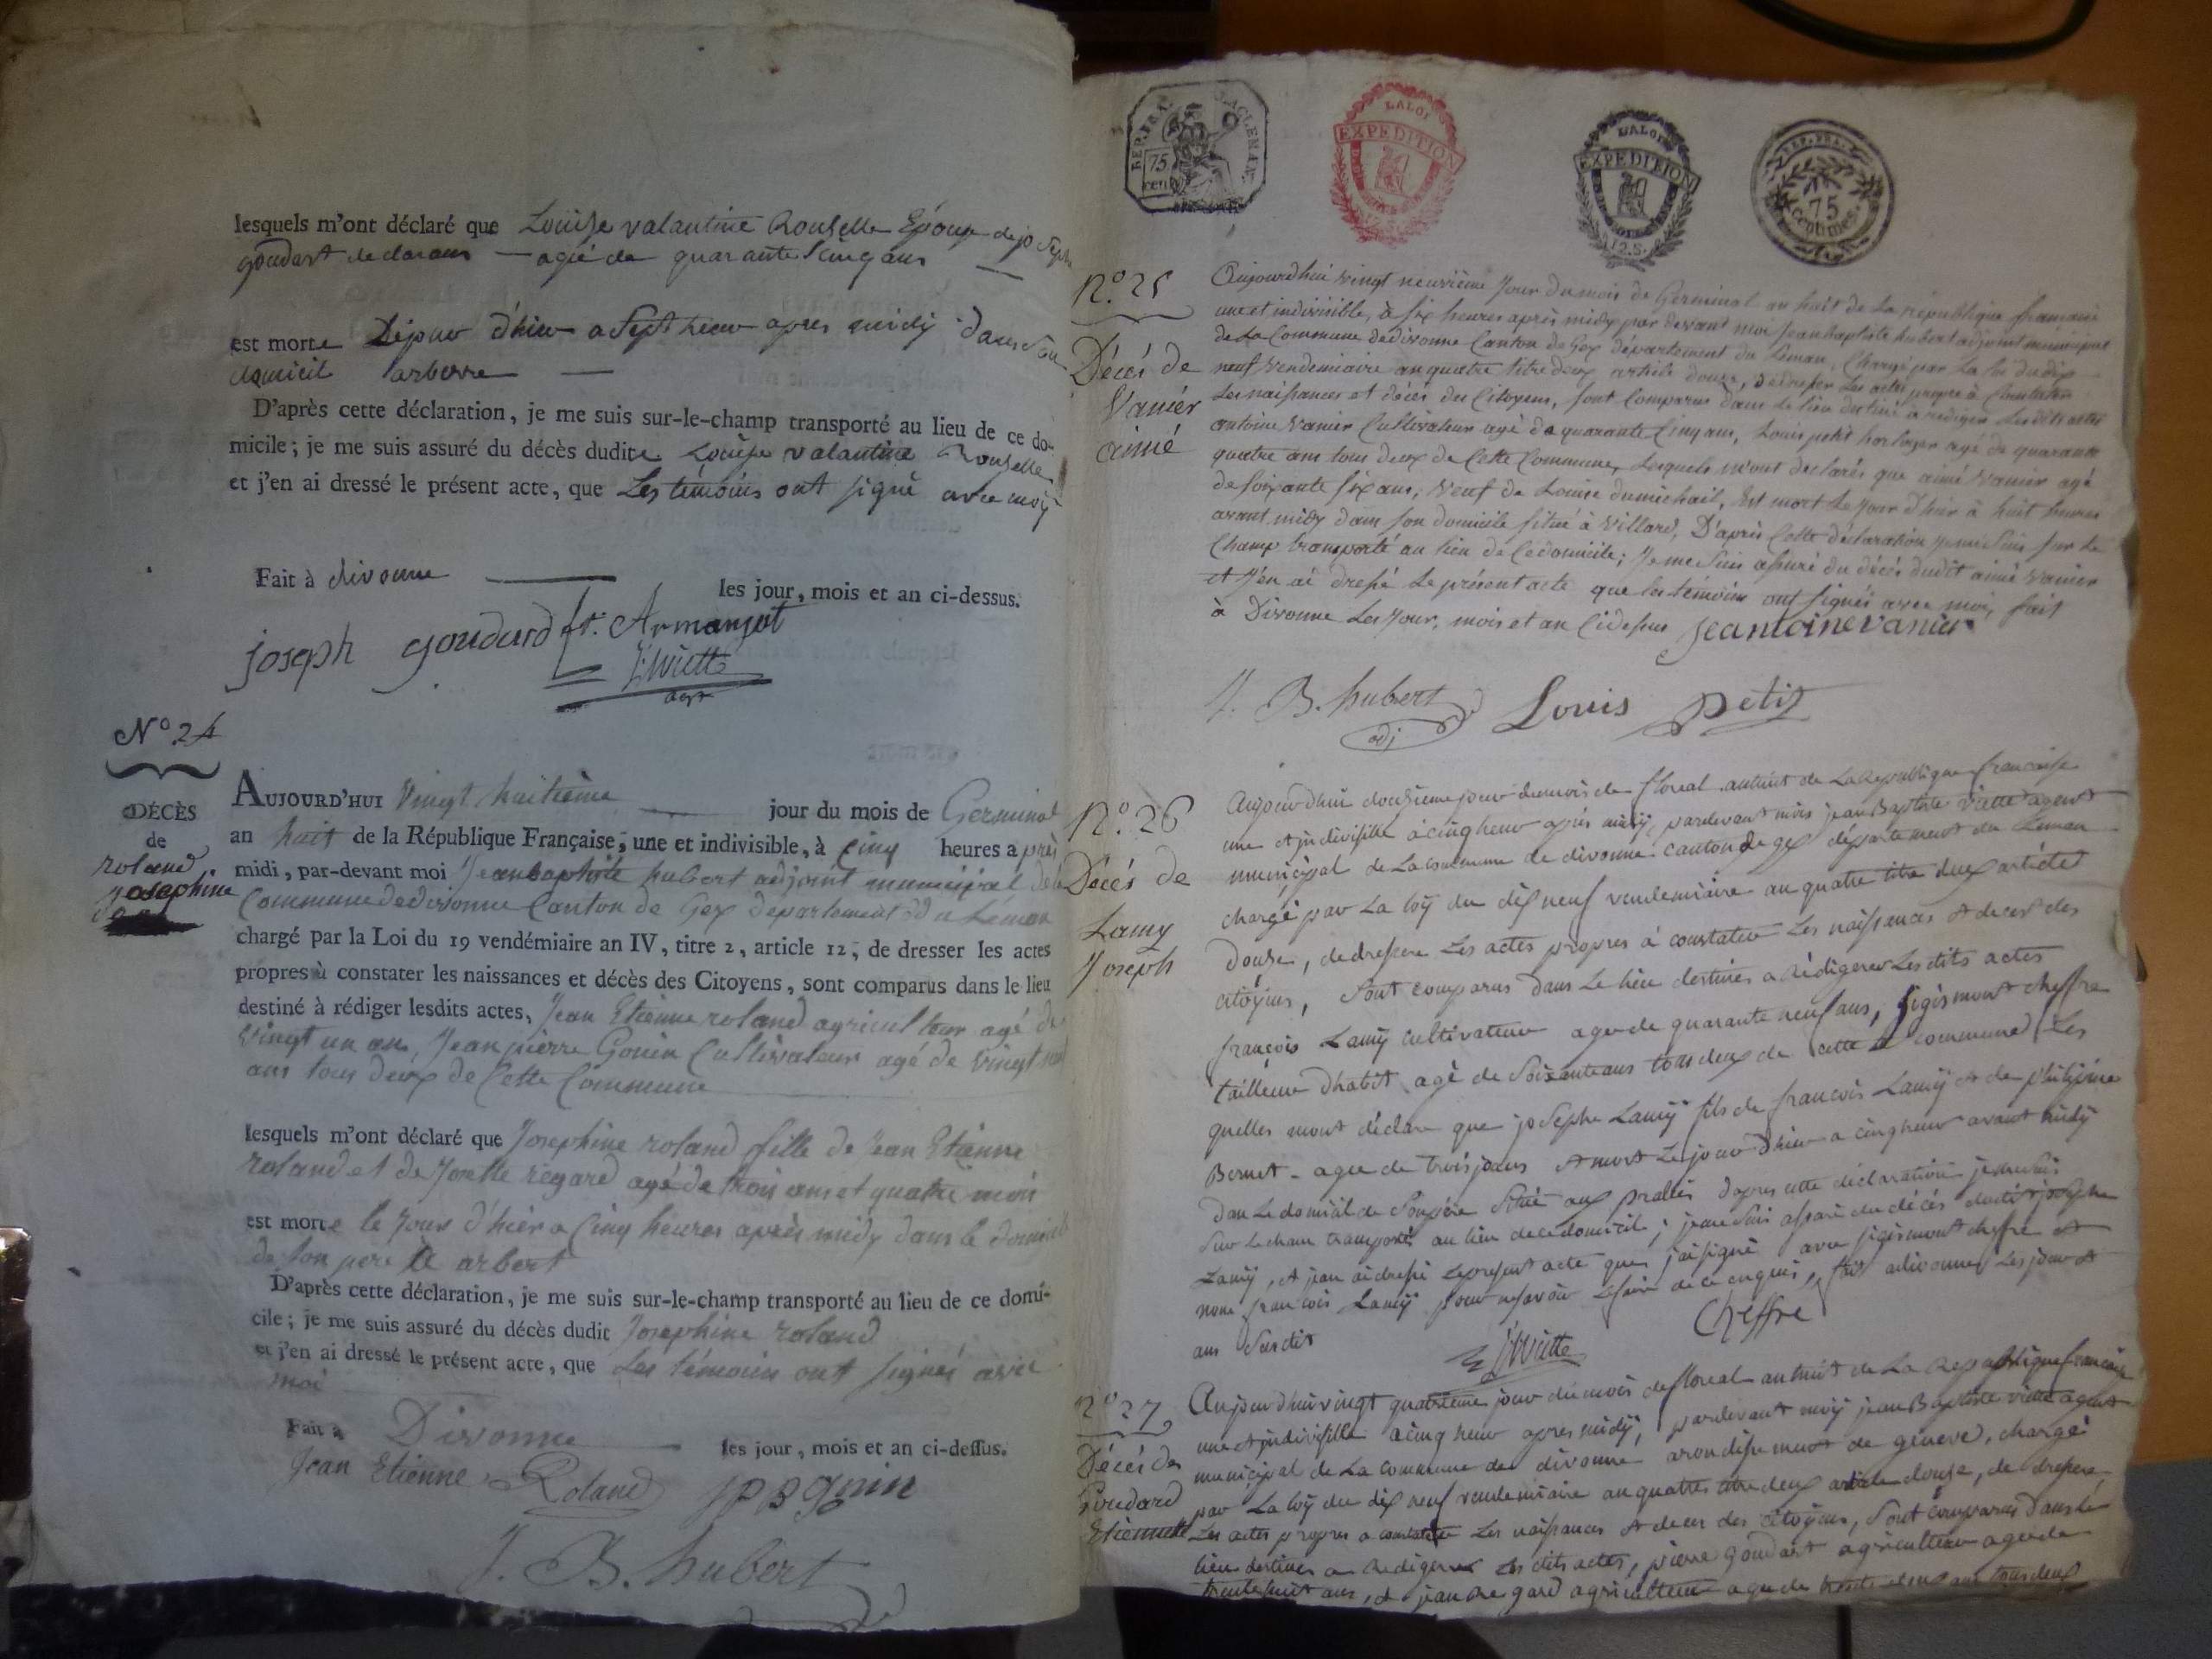 lesquels m'ont déclaré que Louise valantine Rouselle Epouse de joseph
goudart de clarans — agée de quarante cinq ans —
est morte Dépuis d'hier a Sept heur apres midÿ dans son
domicil arberre —
D'après cette déclaration, je me suis sur-le-champ transporté au lieu de ce do-
micile; je me suis assuré du décès dudite Louise valantine Rouselle
et j'en ai dressé le présent acte, que Les temoins ont signé avec moÿ
Fait à divonne — les jour, mois et an ci-dessus.
joseph goudard fs. Armanjot
J. Viette
agt
N° 24
DÉCÈS
de
roland
josephine
AUJOURD'HUI Vingt huitième — jour du mois de Germinal
an huit de la République Française, une et indivisible, à Cinq heures après
midi, par-devant moi Jean baptiste hubert adjoint municipal de la
Commune de divonne Canton de Gex département du Léman
chargé par la Loi du 19 vendémiaire an IV, titre 2, article 12, de dresser les actes
propres à constater les naissances et décès des Citoyens, sont comparus dans le lieu
destiné à rédiger lesdits actes, Jean Etienne roland agriculteur agé de
Vingt un an, Jean pierre Gonin Cultivateur agé de vingt
ans tous deux de Cette Commune
lesquels m'ont déclaré que Josephine roland fille de Jean Etienne
roland et de Josette regard agé de trois ans et quatre mois
est morte le jour d'hier a Cinq heures après midy dans le domicile
de son pere à arbert
D'après cette déclaration, je me suis sur-le-champ transporté au lieu de ce domi-
cile; je me suis assuré du décès dudit Josephine roland
et j'en ai dressé le présent acte, que Les témoins ont signés avec
moi
Fait à Divonne — les jour, mois et an ci-dessus.
Jean Etienne Roland JP Gonin
J. B. hubert
REP. FRA.
75
cent
LA LOI
EXPEDITION
LA LOI
EXPEDITION
12.S.
REP. FRA.
75
centimes
N.° 25
Décés de
Vanier
aimé
Aujourdhui vingt neuvième Jour du mois de Germinal an huit de la république francaise
une et indivisible, à six heures après midy par devant moi Jean baptiste hubert adjoint municipal
de La Commune de divonne Canton de Gex département du Léman, Chargé par La loi du dix
neuf Vendemiaire an quatre titre deux article douze, de dresser les actes propre à Constater
les naissances et décés des Citoyens, sont Comparus dans le lieu destiné à rediger lesdits actes
antoine Vanier Cultivateur agé de quarante Cinq ans, Louis petit horloger agé de quarante
quatre ans tous deux de Cette Commune, lesquels m'ont déclarés que aimé Vanier agé
de soixante six ans, Veuf de Louise dumichail, Est mort Le jour d'hier à huit heures
avant midy dans son domicile situé à Villard, D'après Cette déclaration je me suis sur le
Champ transporté au lieu de Ce domicile; Je me suis assuré du décés dudit aimé Vanier
et J'en ai dressé Le présent acte que les témoins ont signés avec moi, fait
à Divonne Les Jour, mois et an Cidessus Jeantoine vanier
J. B. hubert Louis petit
adj
N.° 26
Décés de
Lamy
Joseph
Aujourdhui douzieme jour du mois de floreal an huit de La Republique francaise
une et indivisible à cinq heur après midÿ, pardevant moi jean Baptiste viette agent
municipal de La commune de divonne canton de gex département du Leman
chargé par La loÿ du dix neuf vendemiaire an quatre titre deux article
douze, de dresser Les actes propres à constater Les naissances et deces des
citoÿens, Sont comparus dans Le lieu destinés a Rédiger Les dits actes
françois Lamÿ cultivateur age de quarante neuf ans, sigismont cheffre
tailleur dhabit agé de Soixante ans tous deux de cette commune Les
quelles mont déclare que joSephe Lamÿ fils de francois Lamÿ et de philipine
Bernet - agee de trois jours est mort Le jour d'hier a cinq heur avant midÿ
Dan Le domicil de Son père Situé aux prallés Dapres cette déclaration je me suis
Sur Le cham transporté au lieu de ce domicil; je me Suis assuré du décés dudit joSephe
Lamÿ, et jean ai dressé Le present acte que jai signé avec sigismont cheffre et
non françois Lamÿ pour ne savoir Le faire de ce enquis, fait a divonne Les jour et
ans Susdit Cheffre
J. Viette
N° 27
Décés de
Goudard
Etiennette
Aujourdhui vingt quatrieme jour du mois de floreal an huit de La Republique francaise
une et indivisible a cinq heur apres midÿ, pardevant moÿ jean Baptiste viette agent
municipal de La commune de divonne arondissement de geneve, chargé
par La loÿ du dix neuf vendemiaire an quattre titre deux article douze, de dresser
Les actes propres a constater Les naissances et deces des citoÿens, Sont comparus dans Le
lieu destines a Rediger Les dits actes, pierre goudart agriculteur age de
trente huit ans, et jean Regard agriculteur age de trente ans tous deux